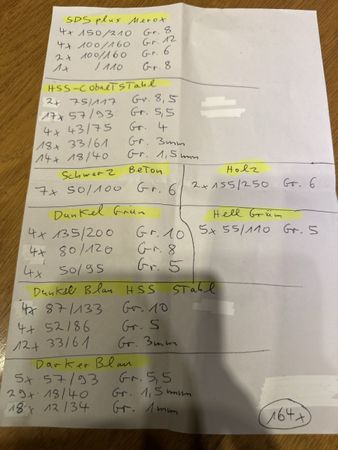 SDS plus Merox
4x 150/210 Gr. 8
4x 100/160 Gr. 12
2x 100/160 Gr. 6
1x /110 Gr. 8
HSS-Cobalt Stahl
2x 75/117 Gr. 8,5
17x 57/93 Gr. 5,5
4x 43/75 Gr. 4
18x 33/61 Gr. 3mm
14x 18/40 Gr. 1,5mm
Schwarz Beton
7x 50/100 Gr. 6
Holz
2x 155/250 Gr. 6
Dunkel Grün
4x 135/200 Gr. 10
4x 80/120 Gr. 8
4x 50/95 Gr. 5
Hell Grün
5x 55/110 Gr. 5
Dunkel Blau HSS Stahl
4x 87/133 Gr. 10
4x 52/86 Gr. 5
12x 33/61 Gr. 3mm
Darker Blau
5x 57/93 Gr. 5,5
29x 18/40 Gr. 1,5mm
18x 12/34 Gr. 1mm
164x